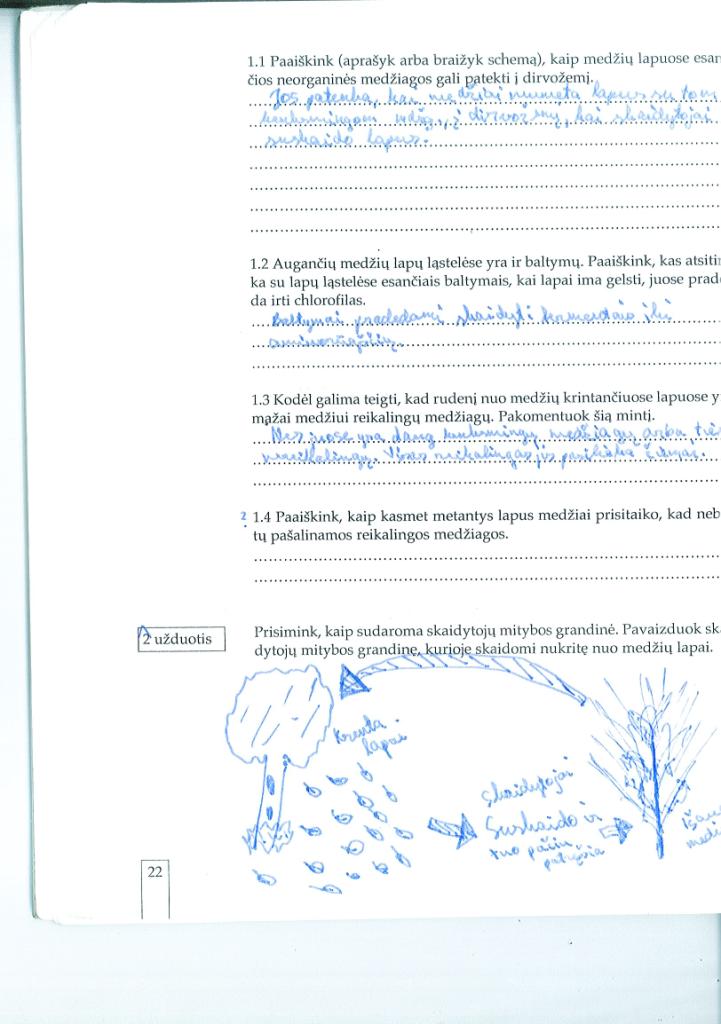 1.1 Paaiškink (aprašyk arba braižyk schemą), kaip medžių lapuose esan
čios neorganinės medžiagos gali patekti į dirvožemį.
Jos patenka, kai medžiai numeta lapus su tom
kenksmingom medžg., į dirvožemį, kai skaidytojai
suskaido lapus.
1.2 Augančių medžių lapų ląstelėse yra ir baltymų. Paaiškink, kas atsitin
ka su lapų ląstelėse esančiais baltymais, kai lapai ima gelsti, juose prade
da irti chlorofilas.
Baltymai pradedami skaidyti fermentais iki
aminorūgščių.
1.3 Kodėl galima teigti, kad rudenį nuo medžių krintančiuose lapuose y
mažai medžiui reikalingų medžiagų. Pakomentuok šią mintį.
Nes juose yra daug kenksmingų medžiagų arba
nereikalingų. Visas reikalingas jis pasilieka
2 1.4 Paaiškink, kaip kasmet metantys lapus medžiai prisitaiko, kad neb
tų pašalinamos reikalingos medžiagos.
2 užduotis
Prisimink, kaip sudaroma skaidytojų mitybos grandinė. Pavaizduok sk
dytojų mitybos grandinę, kurioje skaidomi nukritę nuo medžių lapai.
Krenta
lapai
Skaidytojai
Suskaido ir
tuo pačiu
Išau
med
22